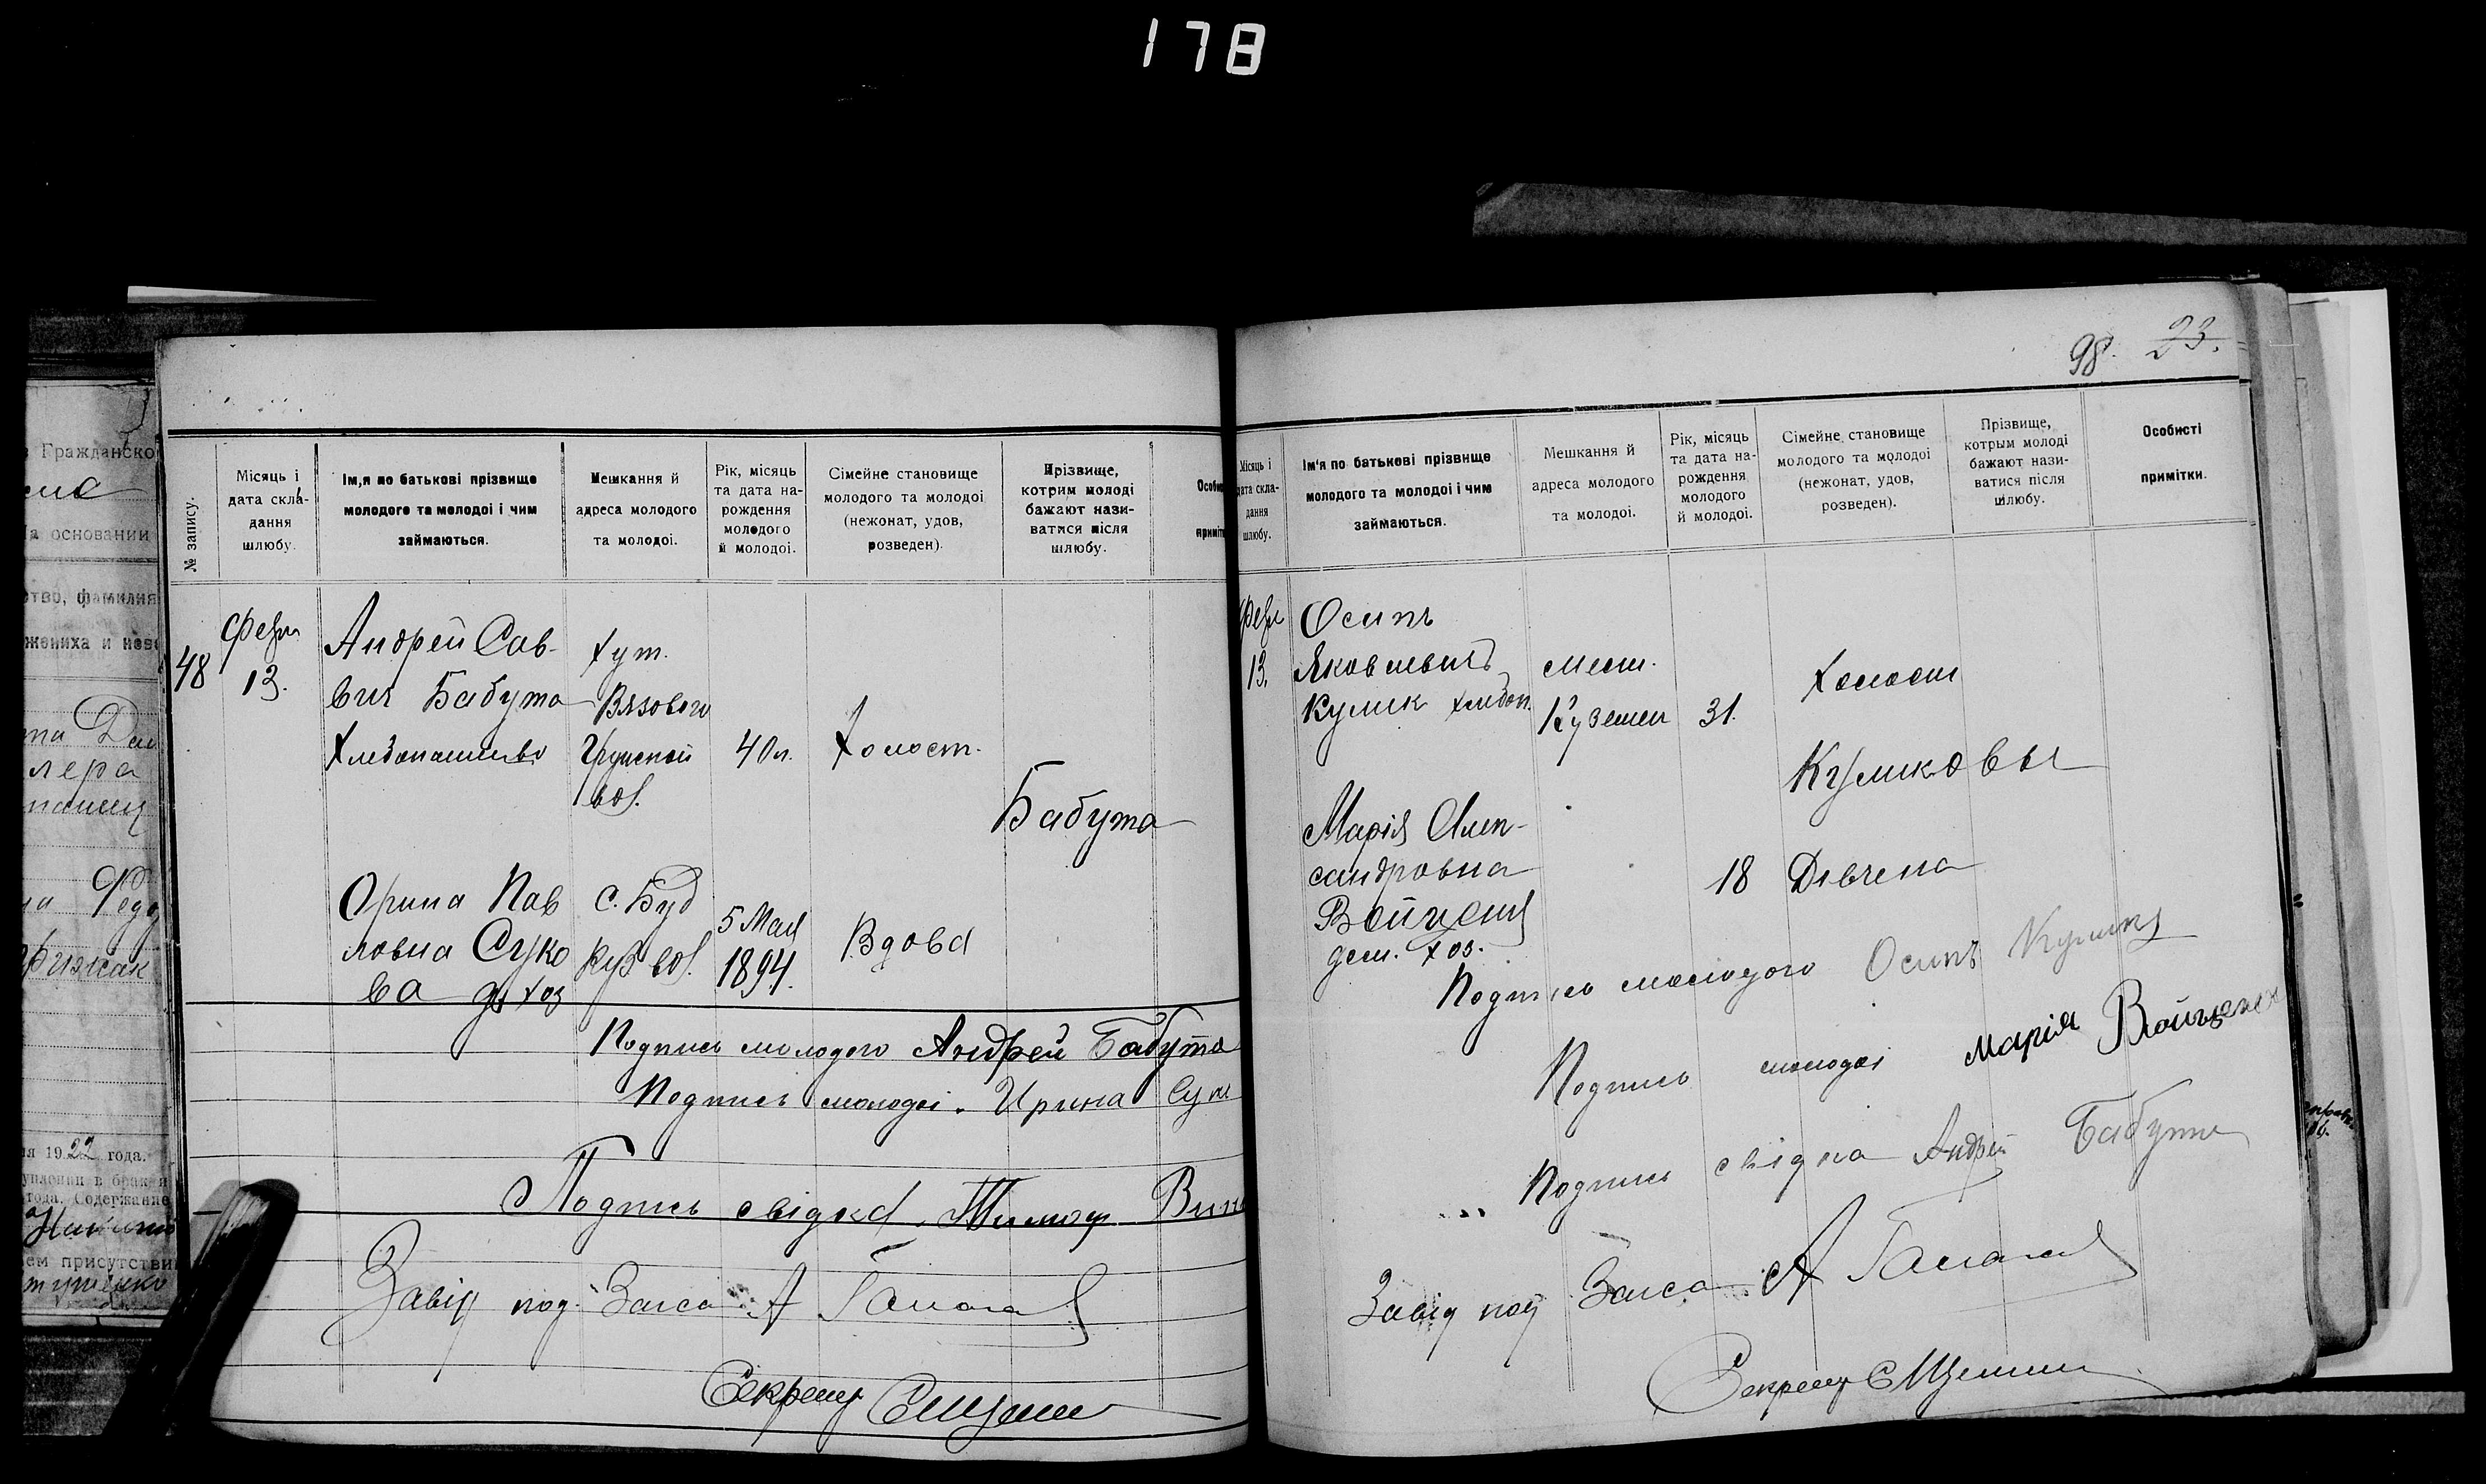 178
Гражданско
На основании
ство, фамилия
жениха и неве
лера
Фризак
19 22 года.
вем присутстви
№ запису.
Місяць і
дата скла-
дання
шлюбу.
Ім,я по батькові прізвище
молодого та молодоі і чим
займаються.
Мешкання й
адреса молодого
та молодоі.
Рік, місяць
та дата на-
рождення
молодого
й молодоі.
Сімейне становище
молодого та молодоі
(нежонат, удов,
розведен).
Прізвище,
котрим молоді
бажают нази-
ватися після
шлюбу.
48
февр
13.
Андрей Сав-
вич Бабута
Хлебопашество
хут.
Вязового
Грунской
вол.
40 л.
Холост.
Бабута
Орина Пав
ловна Суко
ва д. хоз
с. Буд
Куз вол.
5 Мая
1894.
Вдова
Подпись молодого Андрей Бабута
Подпись молодоі. Ирина Сук
Подпись свідка. Тимоф
Завід под. Загса А
Секрет
98. 23.
Місяць і
дата скла-
дання
шлюбу.
Ім'я по батькові прізвище
молодого та молодоі і чим
займаються.
Мешкання й
адреса молодого
та молодоі.
Рік, місяць
та дата на-
рождення
молодого
й молодоі.
Сімейне становище
молодого та молодоі
(нежонат, удов,
розведен).
Прізвище,
котрым молоді
бажают нази-
ватися після
шлюбу.
Особисті
примітки.
февр
13.
Осипъ
Яковлевич
Кулик хлебоп.
мест.
Куземен
31.
Холост
Куликовы
Марія Алек-
сандровна
Войченя
дом. хоз.
18
Дівчена
Подпись молодого Осипъ Кулик
Подпись молодоі Марія
Подпись свідка Андрей Бабута
Завід под Загса А
Секрет